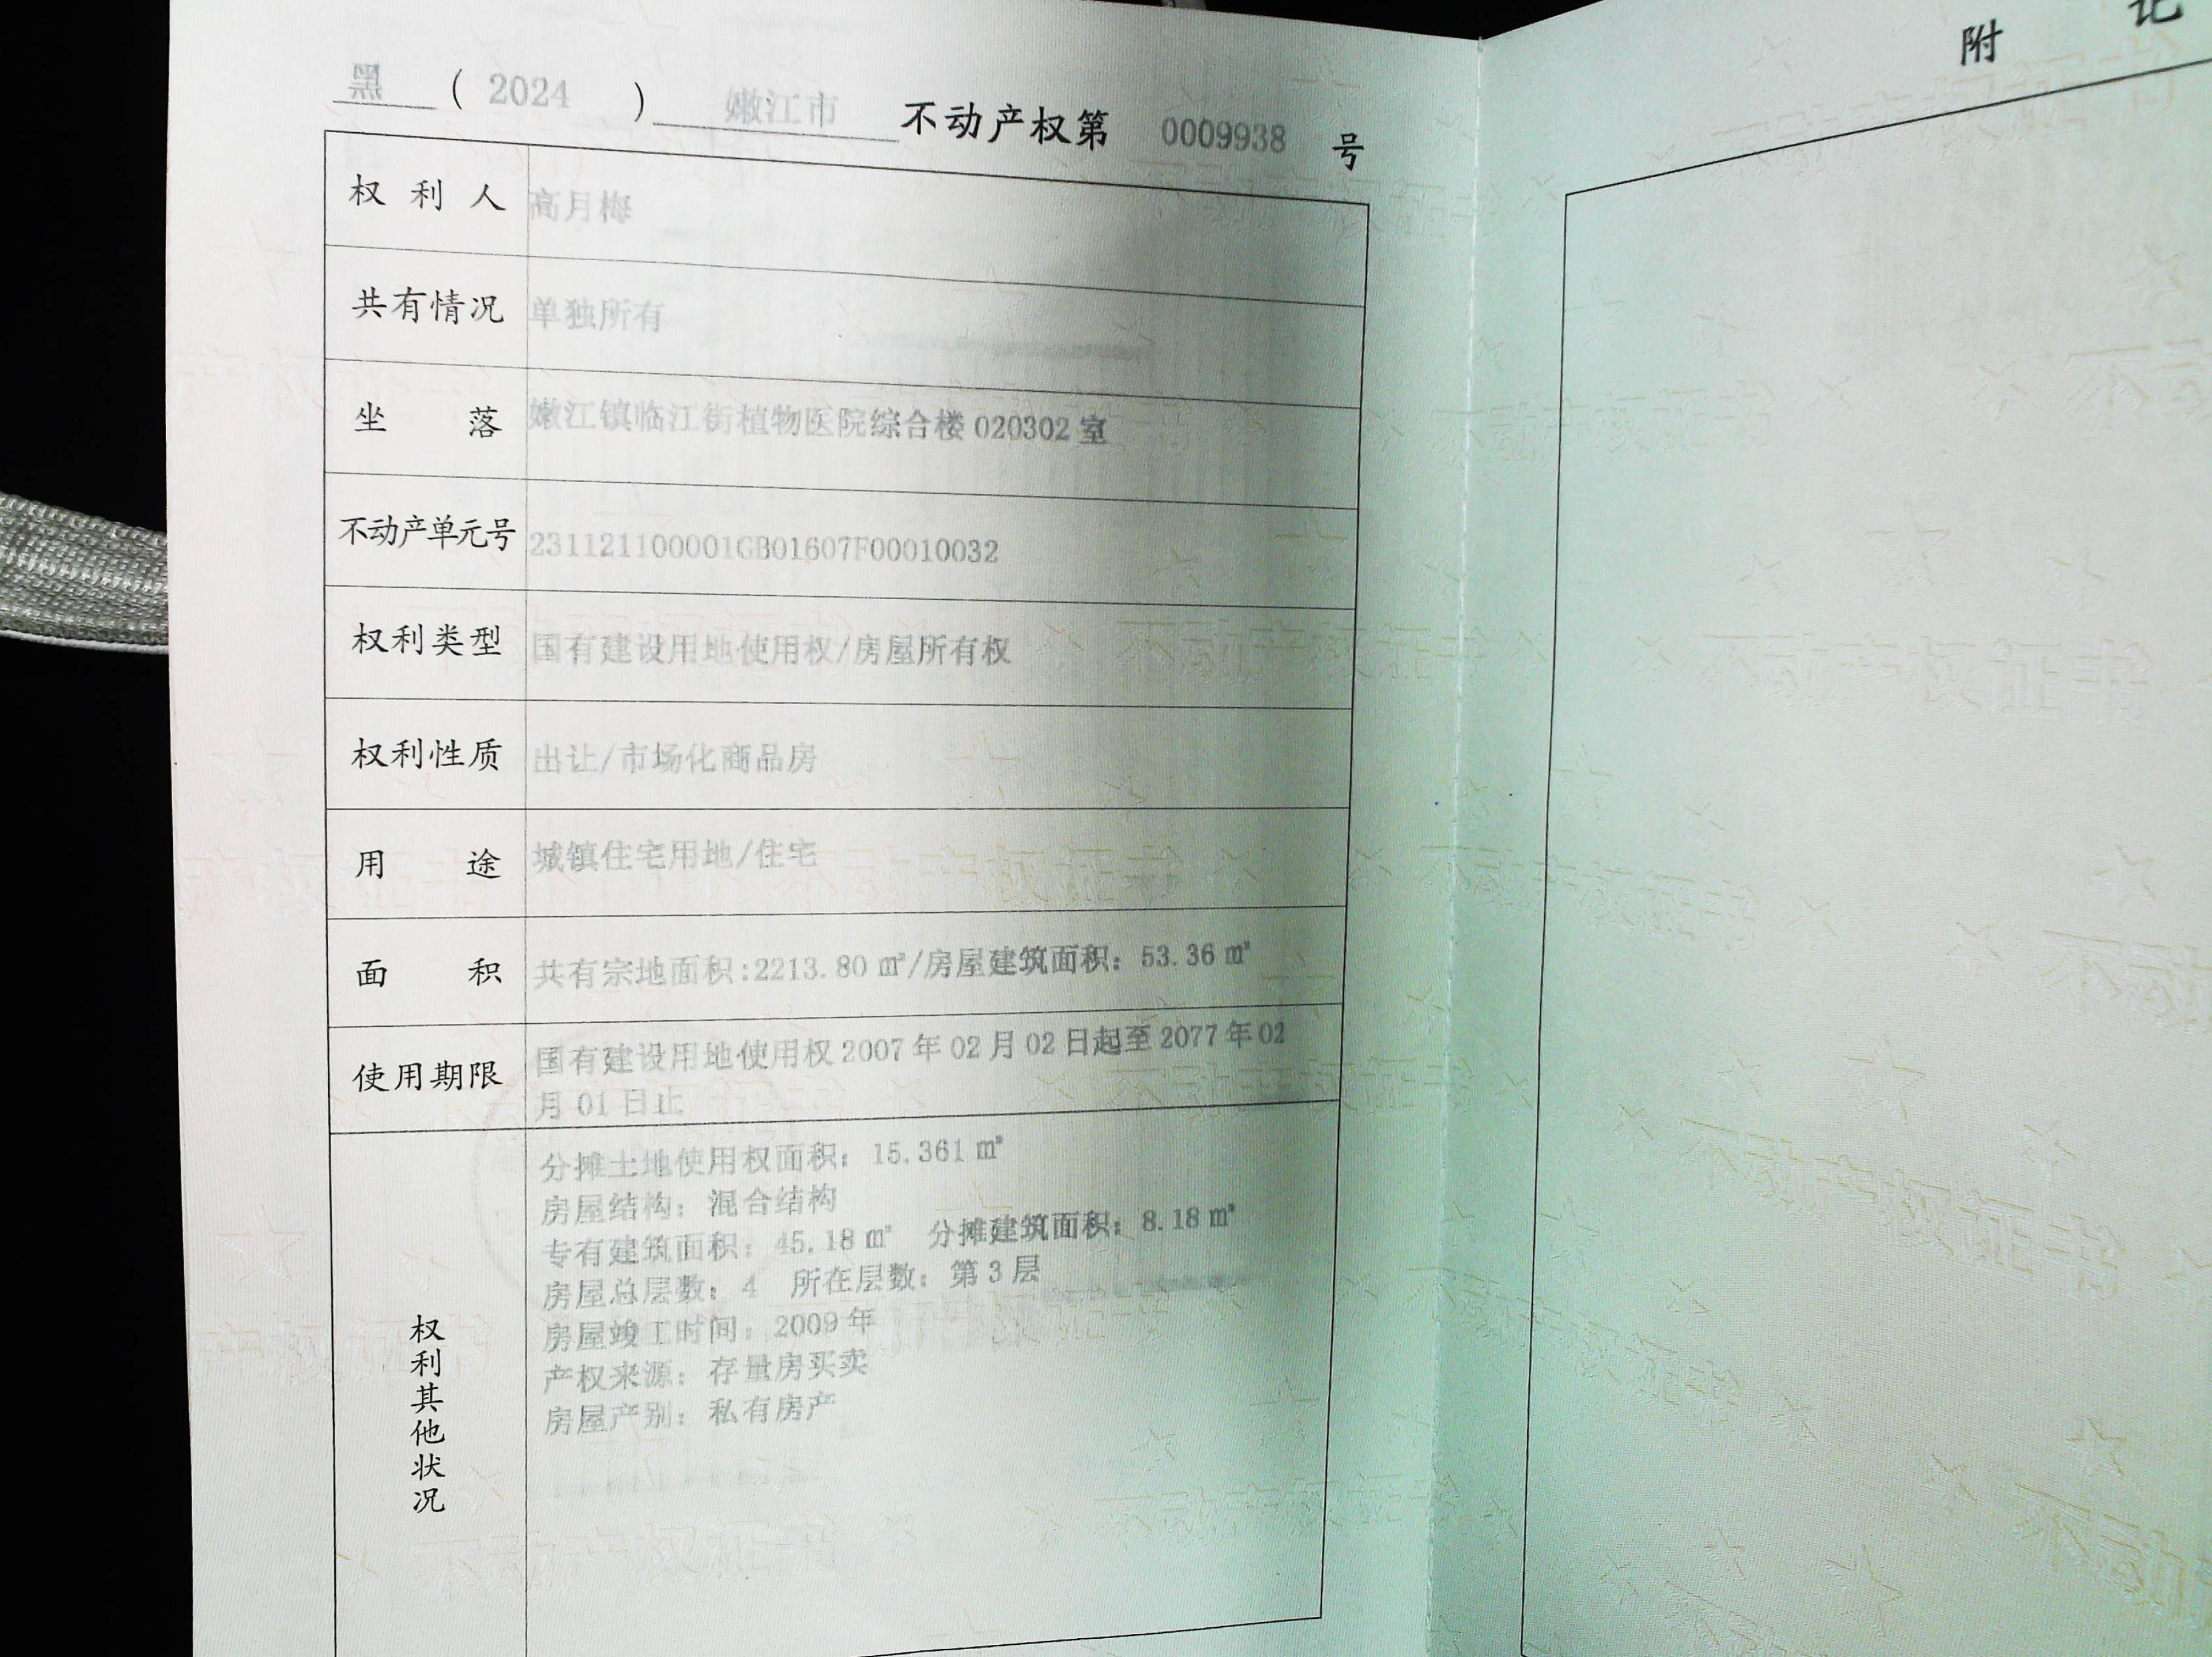 黑 ( 2024 ) 嫩江市 不动产权第 0009938 号
权利人 高月梅
共有情况 单独所有
坐落 嫩江镇临江街植物医院综合楼 020302 室
不动产单元号 231121100001GB01607F00010032
权利类型 国有建设用地使用权/房屋所有权
权利性质 出让/市场化商品房
用途 城镇住宅用地/住宅
面积 共有宗地面积:2213.80 ㎡/房屋建筑面积: 53.36 ㎡
使用期限 国有建设用地使用权 2007 年 02 月 02 日起至 2077 年 02
月 01 日止
权利其他状况
分摊土地使用权面积: 15.361 ㎡
房屋结构: 混合结构
专有建筑面积: 45.18 ㎡ 分摊建筑面积: 8.18 ㎡
房屋总层数: 4 所在层数: 第 3 层
房屋竣工时间: 2009 年
产权来源: 存量房买卖
房屋产别: 私有房产
附 记